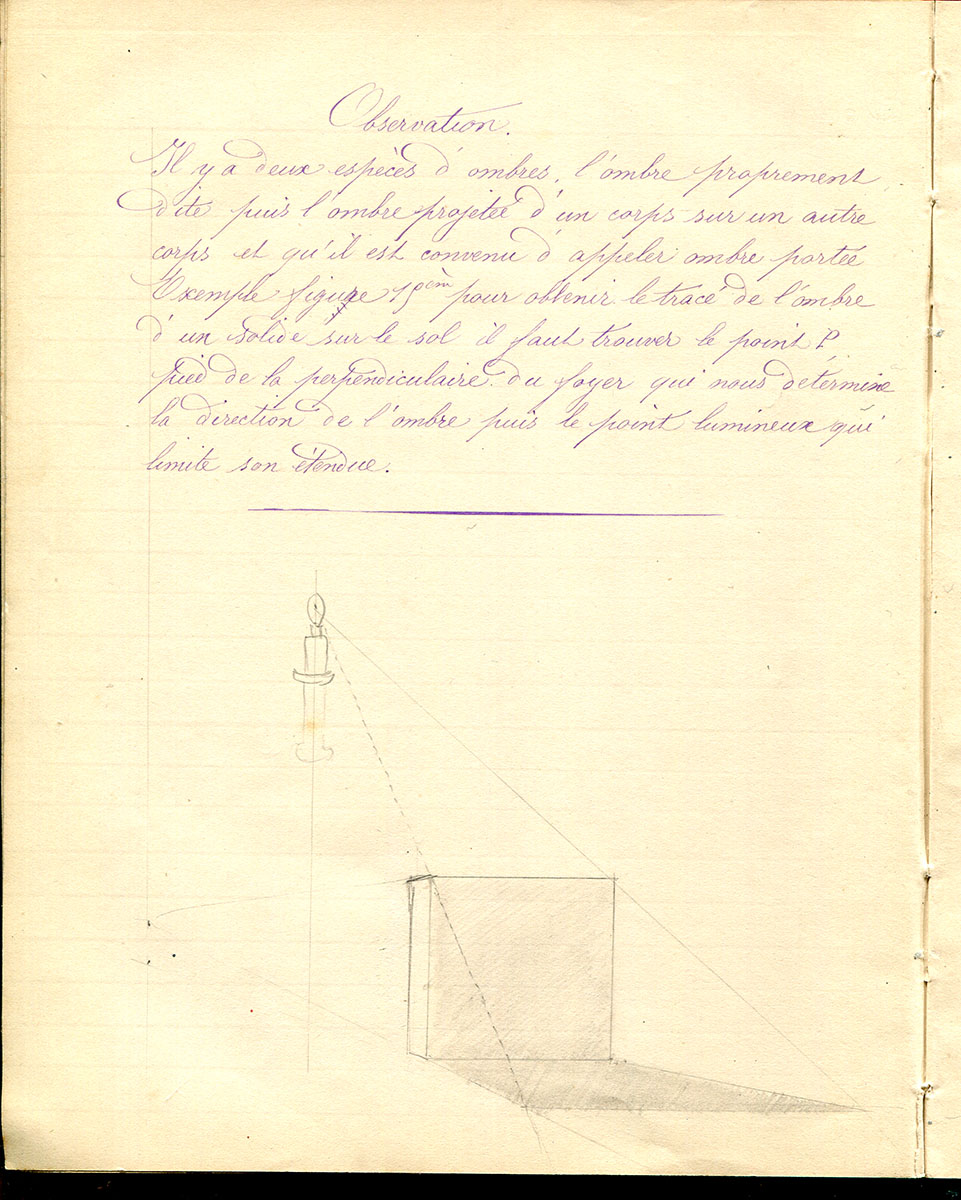 Observation.
Il y a deux espèces d'ombres, l'ombre proprement
dite puis l'ombre projetée d'un corps sur un autre
corps et qu'il est convenu d'appeler ombre portée
Exemple figure pour obtenir le tracé de l'ombre
d'un solide sur le sol il faut trouver le point P
pied de la perpendiculaire du foyer qui nous détermine
la direction de l'ombre puis le point lumineux qui
limite son étendue.